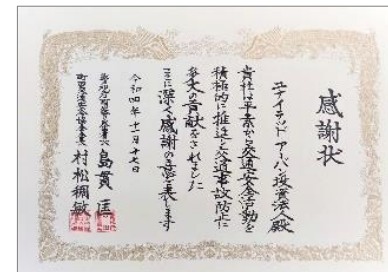 感謝状
ユナイテッド アーバン投資法人殿
貴社は平素から交通安全活動を
積極的に推進し交通事故防止に
多大の貢献をされました
ここに深く感謝の意を表します
令和四年十一月十七日
警視庁町田警察署長 島貫 匡
町田交通安全協会会長 村松稠敏